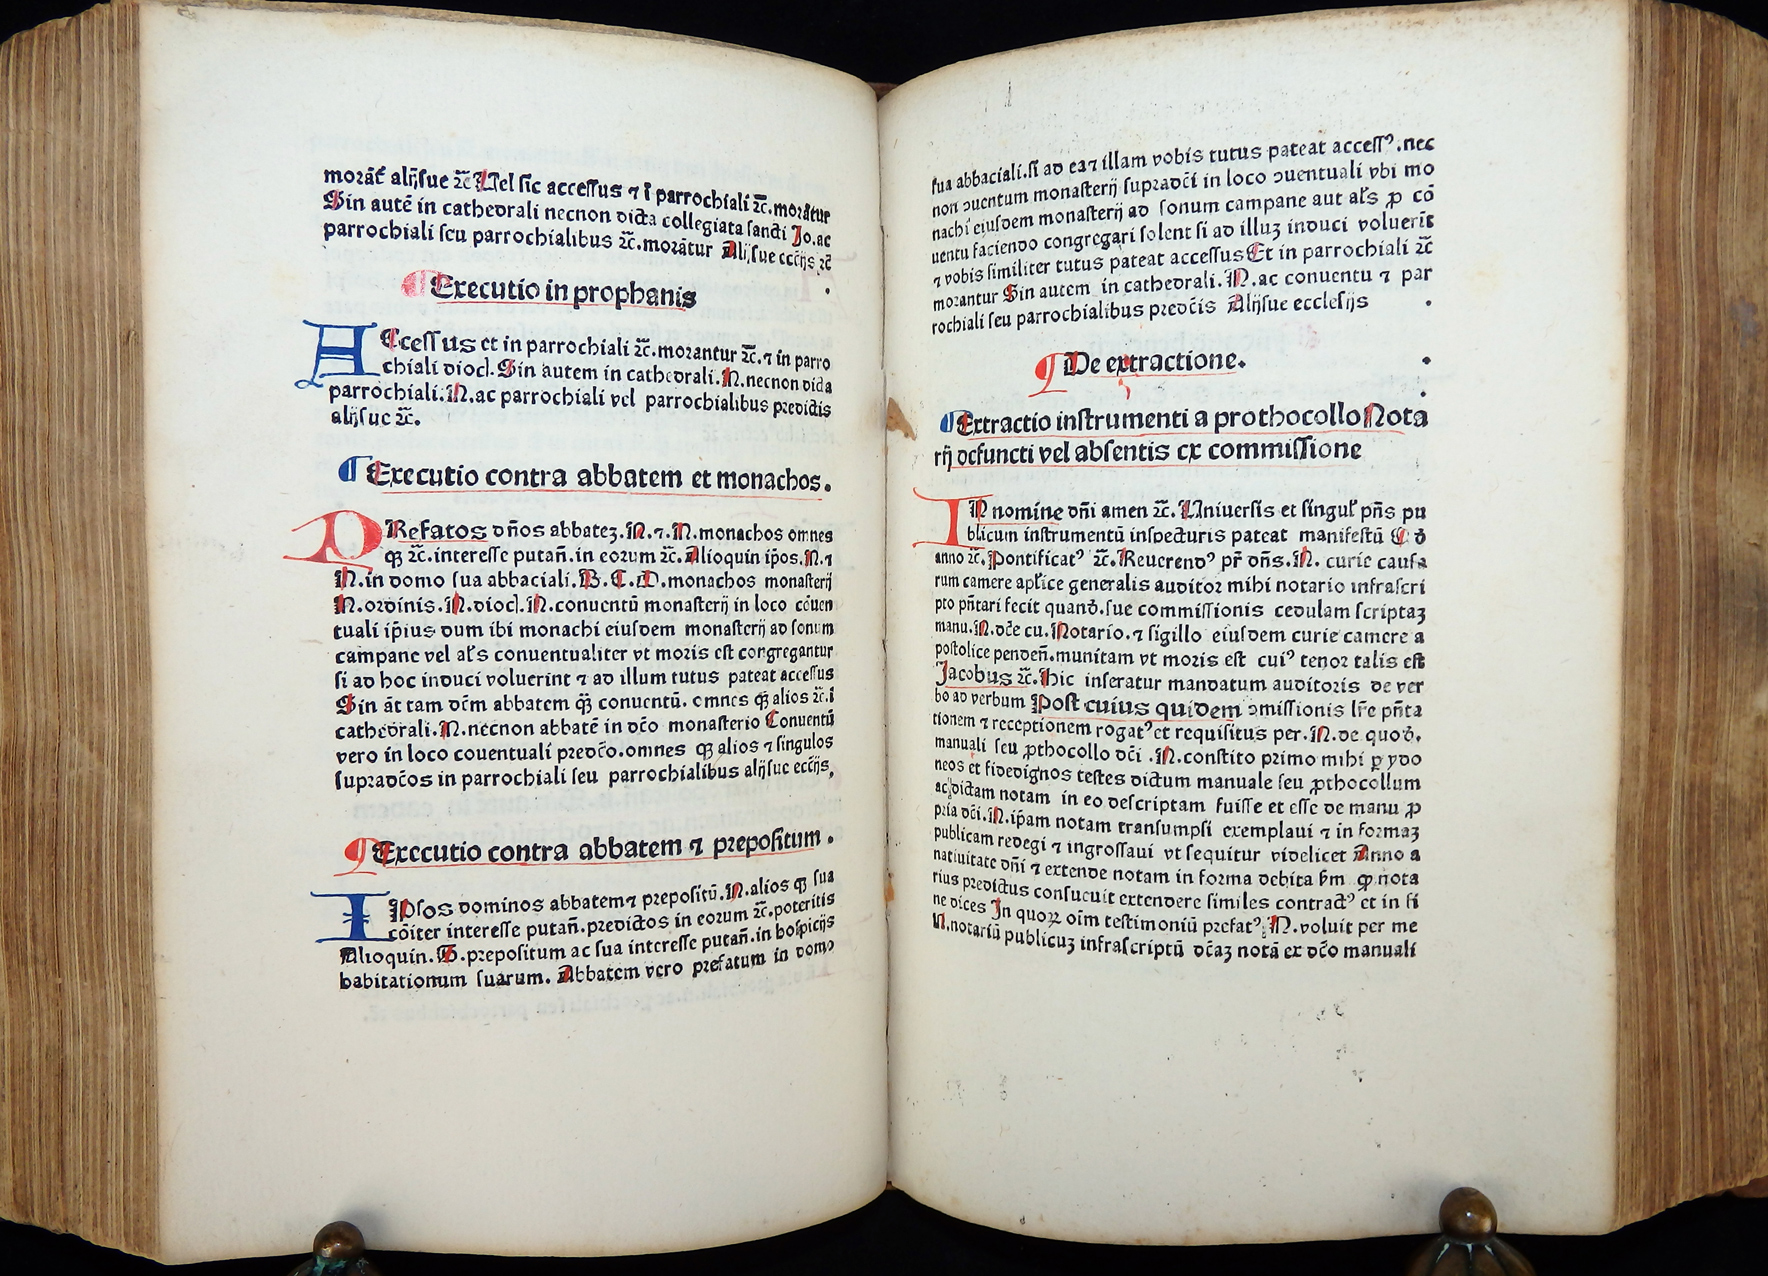 morāt̄ alijſue ⁊c̄ Uel ſic acceſſus ⁊ ī parrochiali ⁊c̄.morātur
Sin autē in cathedrali necnon dicta collegiata ſancti Jo.ac
parrochiali ſeu parrochialibus ⁊c̄.morātur Alijſue eccīijs ⁊c̄
¶Executio in prophanis
ACceſſus et in parrochiali ⁊c̄.morantur ⁊c̄.⁊ in parro
chiali dioc̄. Sin autem in cathedrali.N.necnon dicta
parrochiali.N.ac parrochiali vel parrochialibus predictis
alijſue ⁊c̄.
¶Executio contra abbatem et monachos.
PRefatos dn̄os abbateꝫ.N.⁊.N.monachos omnes
qꝫ ⁊c̄.intereſſe putan̄.in eorum ⁊c̄.Alioquin ip̄os.N.⁊
N.in domo ſua abbaciali.B.C.D.monachos monaſterij
N.ordinis.N.dioc̄.N.conuentū monaſterij in loco cōuen
tuali ip̄ius dum ibi monachi eiuſdem monaſterij ad ſonum
campane vel al̄s conuentualiter vt moris eſt congregantur
ſi ad hoc induci voluerint ⁊ ad illum tutus pateat acceſſus
Sin āt tam dc̄m abbatem qꝫ̄ conuentū. omnes qꝫ̄ alios ⁊c̄.ī
cathedrali.N.necnon abbatē in dc̄o monaſterio Conuentū
vero in loco couentuali predc̄o.omnes qꝫ alios ⁊ ſingulos
ſupradc̄os in parrochiali ſeu parrochialibus alijſue ecc̄ijs,
¶Executio contra abbatem ⁊ prepoſitum.
IPſos dominos abbatem⁊ prepoſitū.N.alios qꝫ ſua
cōiter intereſſe putan̄.predictos in eorum ⁊c̄.poteritis
Alioquin.B.prepoſitum ac ſua intereſſe putan̄.in hoſpicijs
habitationum ſuarum. Abbatem vero prefatum in domo
ſua abbaciali.ſi ad ea⁊ illam vobis tutus pateat acceſſꝰ.nec
non ꝯuentum monaſterij ſupradc̄i in loco ꝯuentuali vbi mo
nachi eiuſdem monaſterij ad ſonum campane aut al̄s ꝓ cō
uentu faciendo congregari ſolent ſi ad illuꝫ induci voluerīt
⁊ vobis ſimiliter tutus pateat acceſſus Et in parrochiali ⁊c̄
morantur Sin autem in cathedrali.N.ac conuentu ⁊ par
rochiali ſeu parrochialibus predc̄is Alijſue eccleſijs
¶De extractione.
¶Extractio inſtrumenti a prothocollo Nota
rij defuncti vel abſentis ex commiſſione
IN nomine dn̄i amen ⁊c̄. Uniuerſis et ſingul̄ pn̄s pu
blicum inſtrumentū inſpecturis pateat manifeſtū
anno ⁊c̄.Pontificatꝰ ⁊c̄.Reuerendꝰ pr̄ dn̄s.N. curie cauſa
rum camere apl̄ice generalis auditor mihi notario infraſcri
pto pn̄tari fecit quand̄.ſue commiſſionis cedulam ſcriptaꝫ
manu.N.dc̄e cu.Notario.⁊ ſigillo eiuſdem curie camere a
poſtolice penden̄.munitam vt moris eſt cuiꝰ tenor talis eſt
Jacobus ⁊c̄.Hic inſeratur mandatum auditoris de ver
bo ad verbum Poſt cuius quidem ꝯmiſſionis lr̄e pn̄ta
tionem ⁊ receptionem rogatꝰ et requiſitus per.N.de quod̄.
manuali ſeu ꝓthocollo dc̄i .N.conſtito primo mihi ꝑ ydo
neos et fidedignos teſtes dictum manuale ſeu ꝓthocollum
ac dictam notam in eo deſcriptam fuiſſe et eſſe de manu ꝓ
pria dc̄i.N.ip̄am notam tranſumpſi exemplaui ⁊ in formaꝫ
publicam redegi ⁊ ingroſſaui vt ſequitur videlicet Anno a
natiuitate dn̄i ⁊ extende notam in forma debita ꝓ nota
rius predictus conſueuit extendere ſimiles contractꝰ et in fi
ne dices In quoꝝ oīm teſtimoniū prefatꝰ.N.voluit per me
N.notariū publicuꝫ infraſcriptū dc̄aꝫ notā ex dc̄o manuali